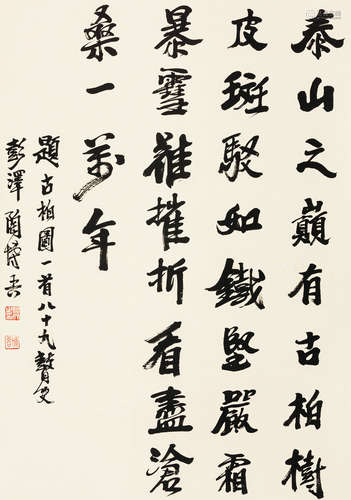 泰山之巔有古柏樹
皮斑駁如鐵堅嚴霜
暴雪難摧折看盡滄
桑一萬年
題古柏圖一首八十九聱叟
彭澤陶博吾